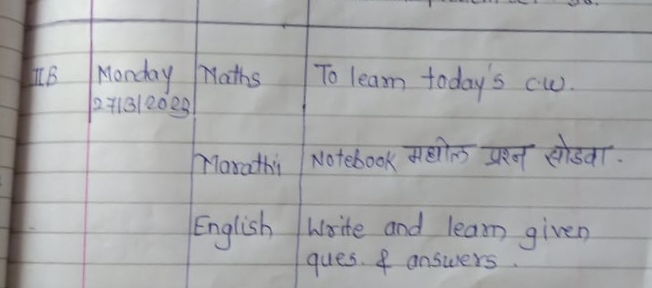 IIB Monday Maths To learn today's c.w.
27/3/2023
Marathi Notebook मधील प्रश्न सोडवा.
English Write and learn given
ques. & answers.